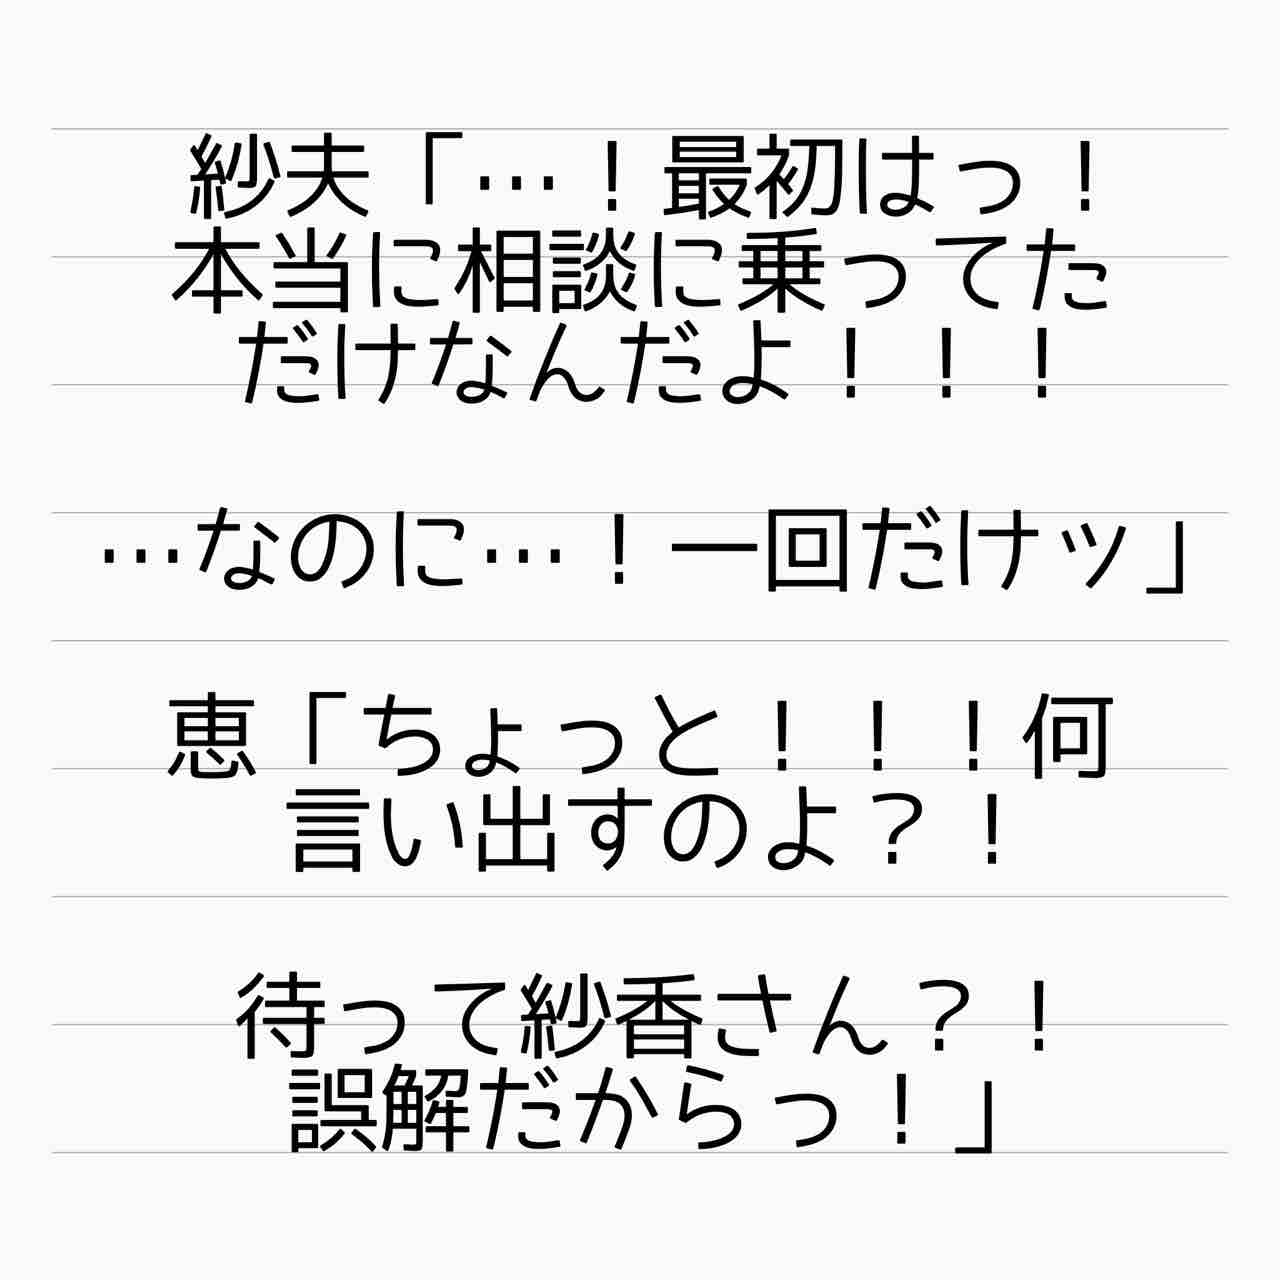 紗夫「…！最初はっ！
本当に相談に乗ってた
だけなんだよ！！！
…なのに…！一回だけッ」
恵「ちょっと！！！何
言い出すのよ？！
待って紗香さん？！
誤解だからっ！」